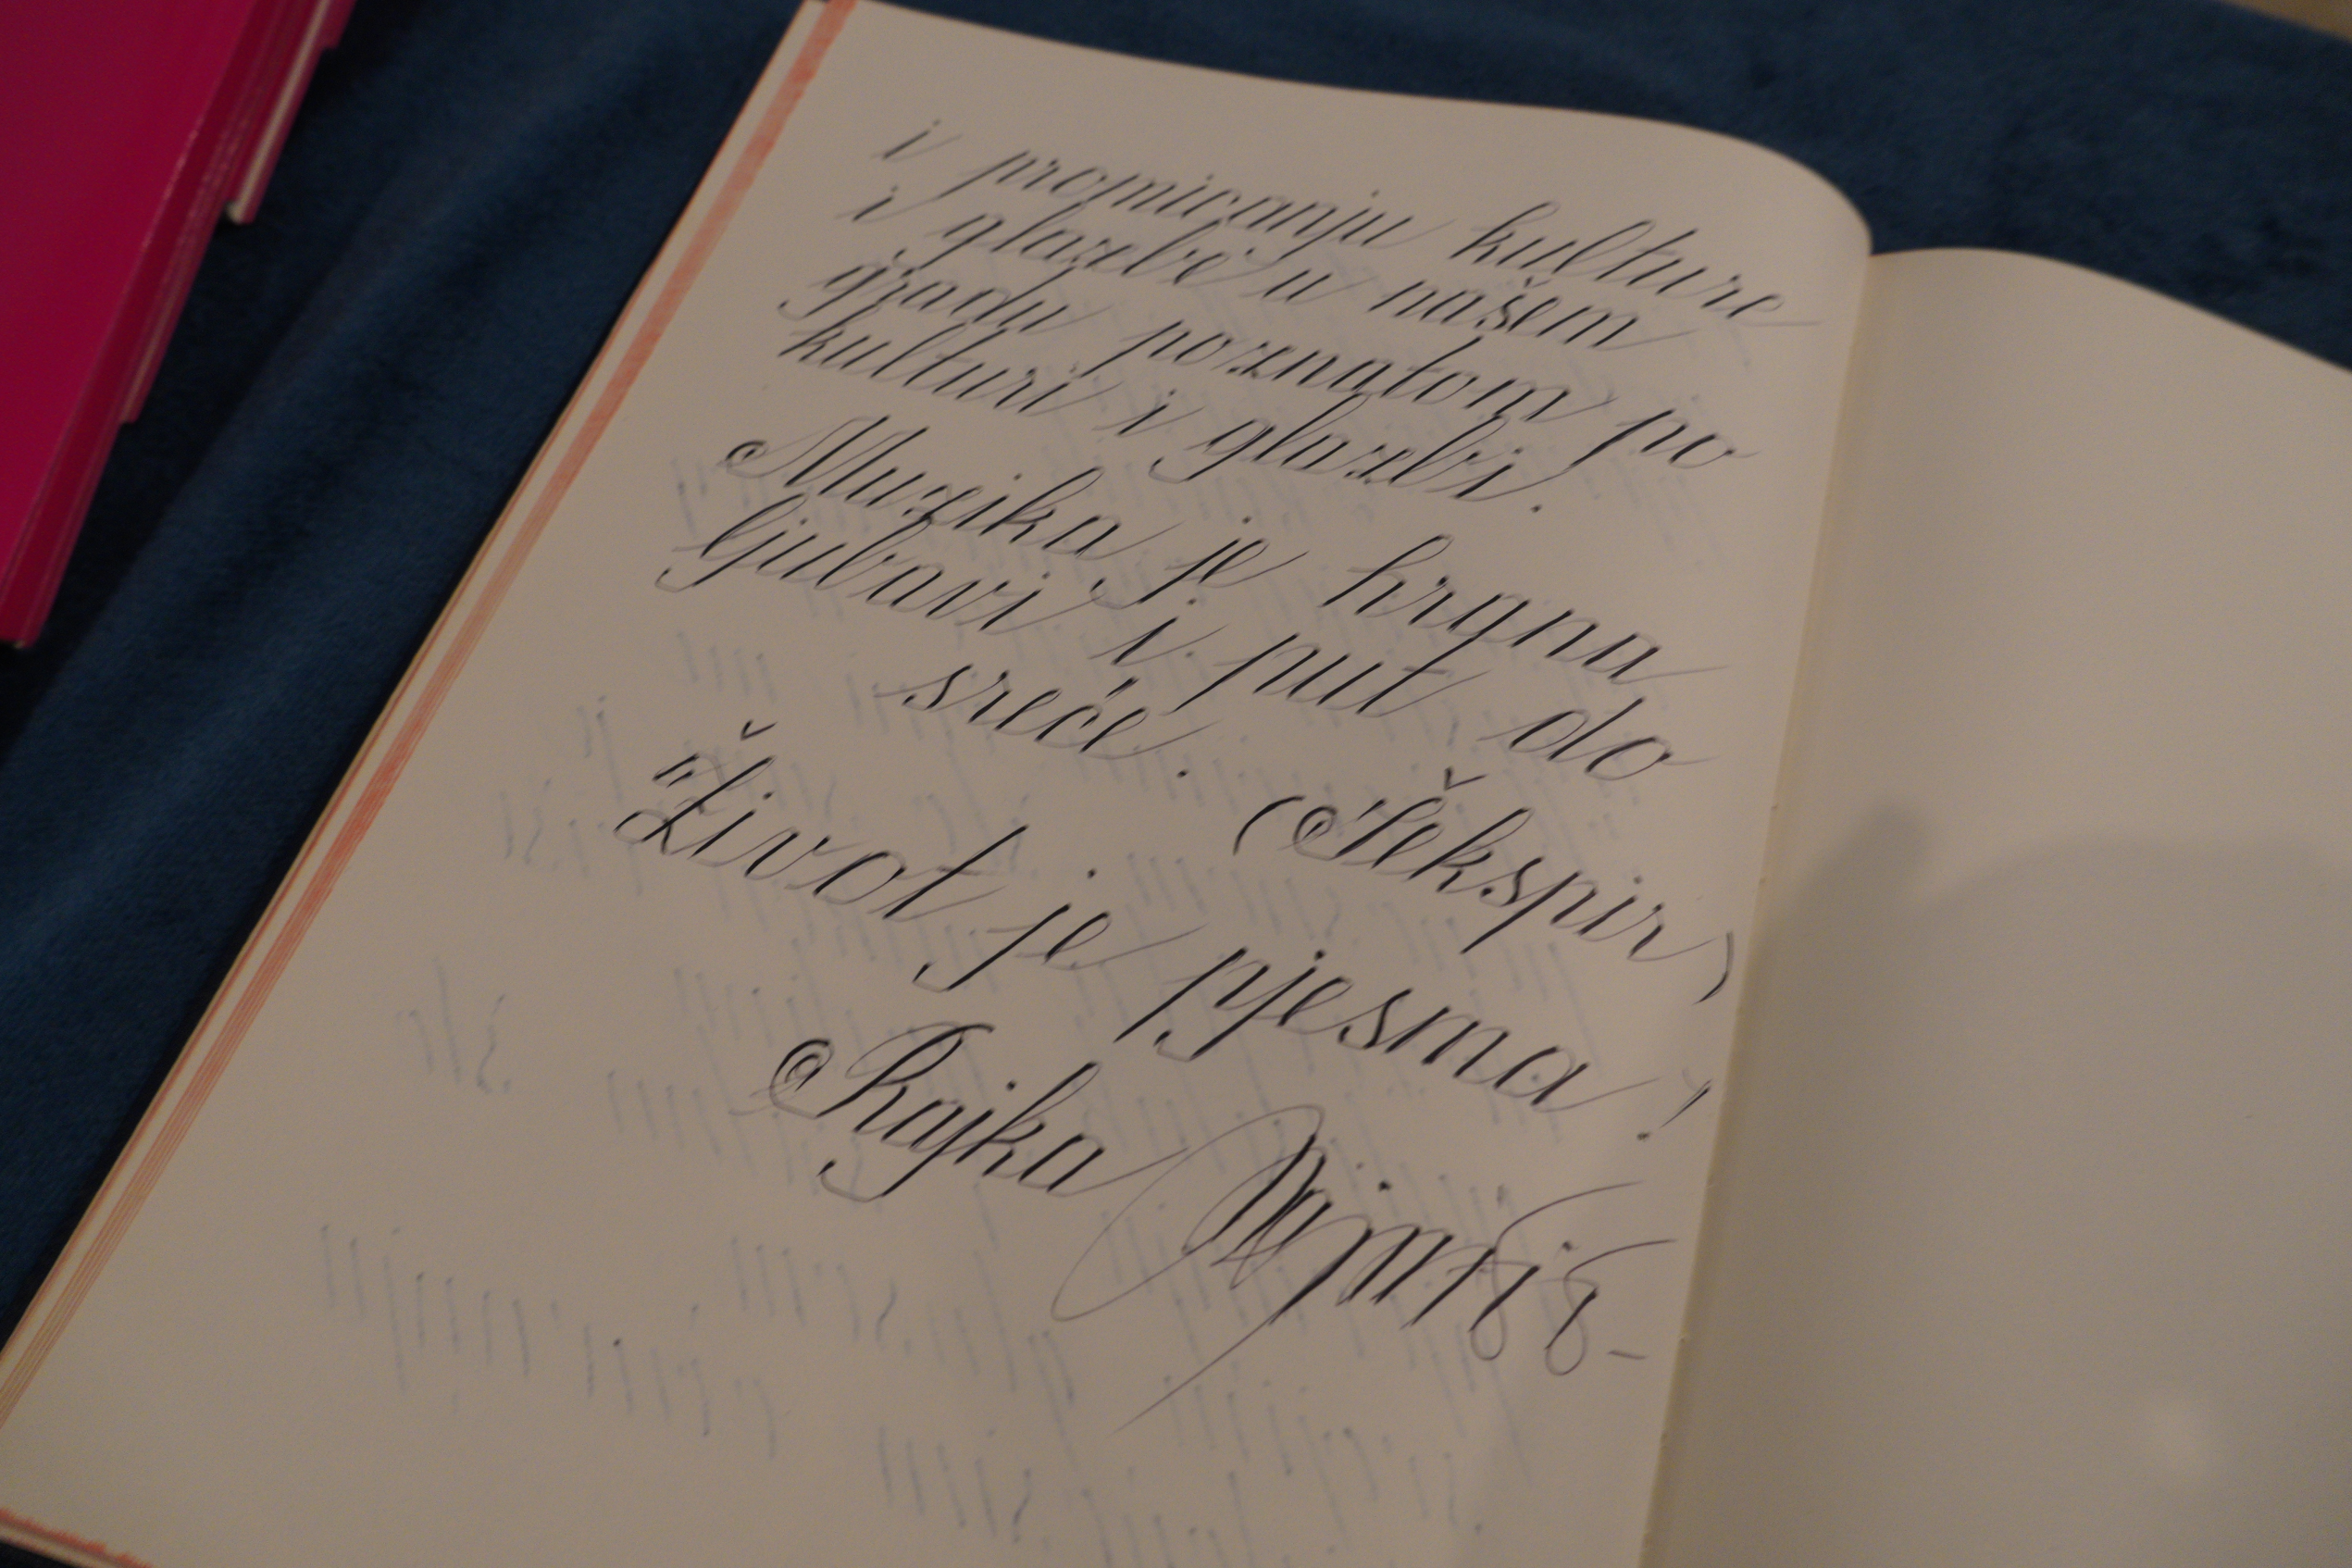 i promicanju kulture
i glazbe u našem
gradu poznatom po
kulturi i glazbi.
Muzika je hrana
ljubavi i put do
sreće.
(Šekspir)
"Život je pjesma!
Rajka